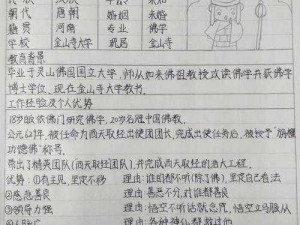 朝代 唐朝 婚姻 未婚
籍贯 河南 专业 佛学
学校 金山寺大学
教育背景
毕业于灵山佛国国立大学，师从如来佛祖教授攻读佛学并获佛学
博士学位，现在金山寺大学教书。
工作经验及个人优势
18岁皈依佛门研究佛学，20岁名冠中国佛教。
被任命为西天取经出使团团长，完成出使任务后，被授予
功德佛"称号。
带出1精英团队(西天取经团队)，并完成西天取经的西大工程。
优势：①有主见，坚定不移 理由：谁都不听(除了佛)，坚定自己看法
②慈悲善良 理由：善恶不分，对谁都善良
③领导力强 理由：悟空不听话就念咒，悟空立马服从
理由：各种神仙都救过他